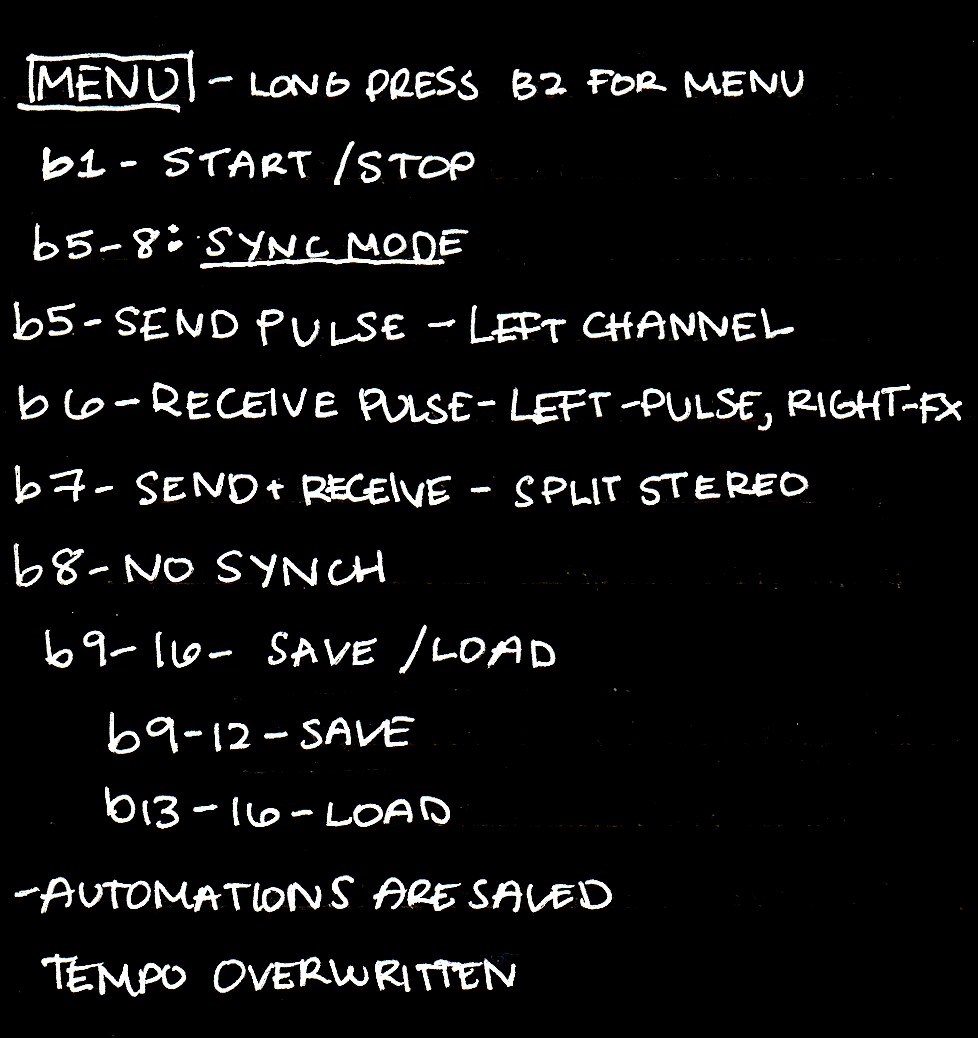 MENU - LONG PRESS B2 FOR MENU
b1 - START / STOP
b5-8: SYNC MODE
b5 - SEND PULSE - LEFT CHANNEL
b6 - RECEIVE PULSE - LEFT - PULSE, RIGHT-FX
b7 - SEND + RECEIVE - SPLIT STEREO
b8 - NO SYNCH
b9-16 - SAVE / LOAD
b9-12 - SAVE
b13-16 - LOAD
- AUTOMATIONS ARE SAVED
TEMPO OVERWRITTEN